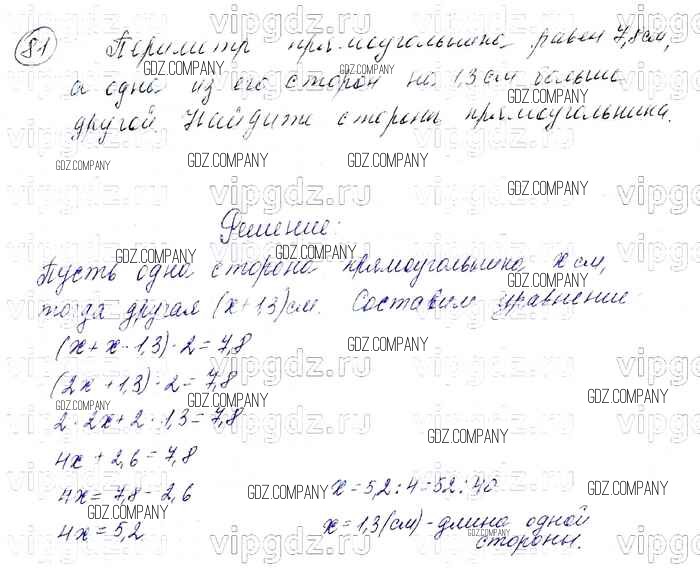 81 Периметр прямоугольника равен 7,8 см,
а одна из его сторон на 1,3 см больше
другой. Найдите стороны прямоугольника.
Решение:
Пусть одна сторона прямоугольника x см,
тогда другая (x+1,3) см. Составим уравнение
(x+x-1,3)·2=7,8
(2x+1,3)·2=7,8
2·2x+2·1,3=7,8
4x+2,6=7,8
4x=7,8-2,6
4x=5,2
x=5,2:4=52:40
x=1,3(см)-длина одной
стороны.